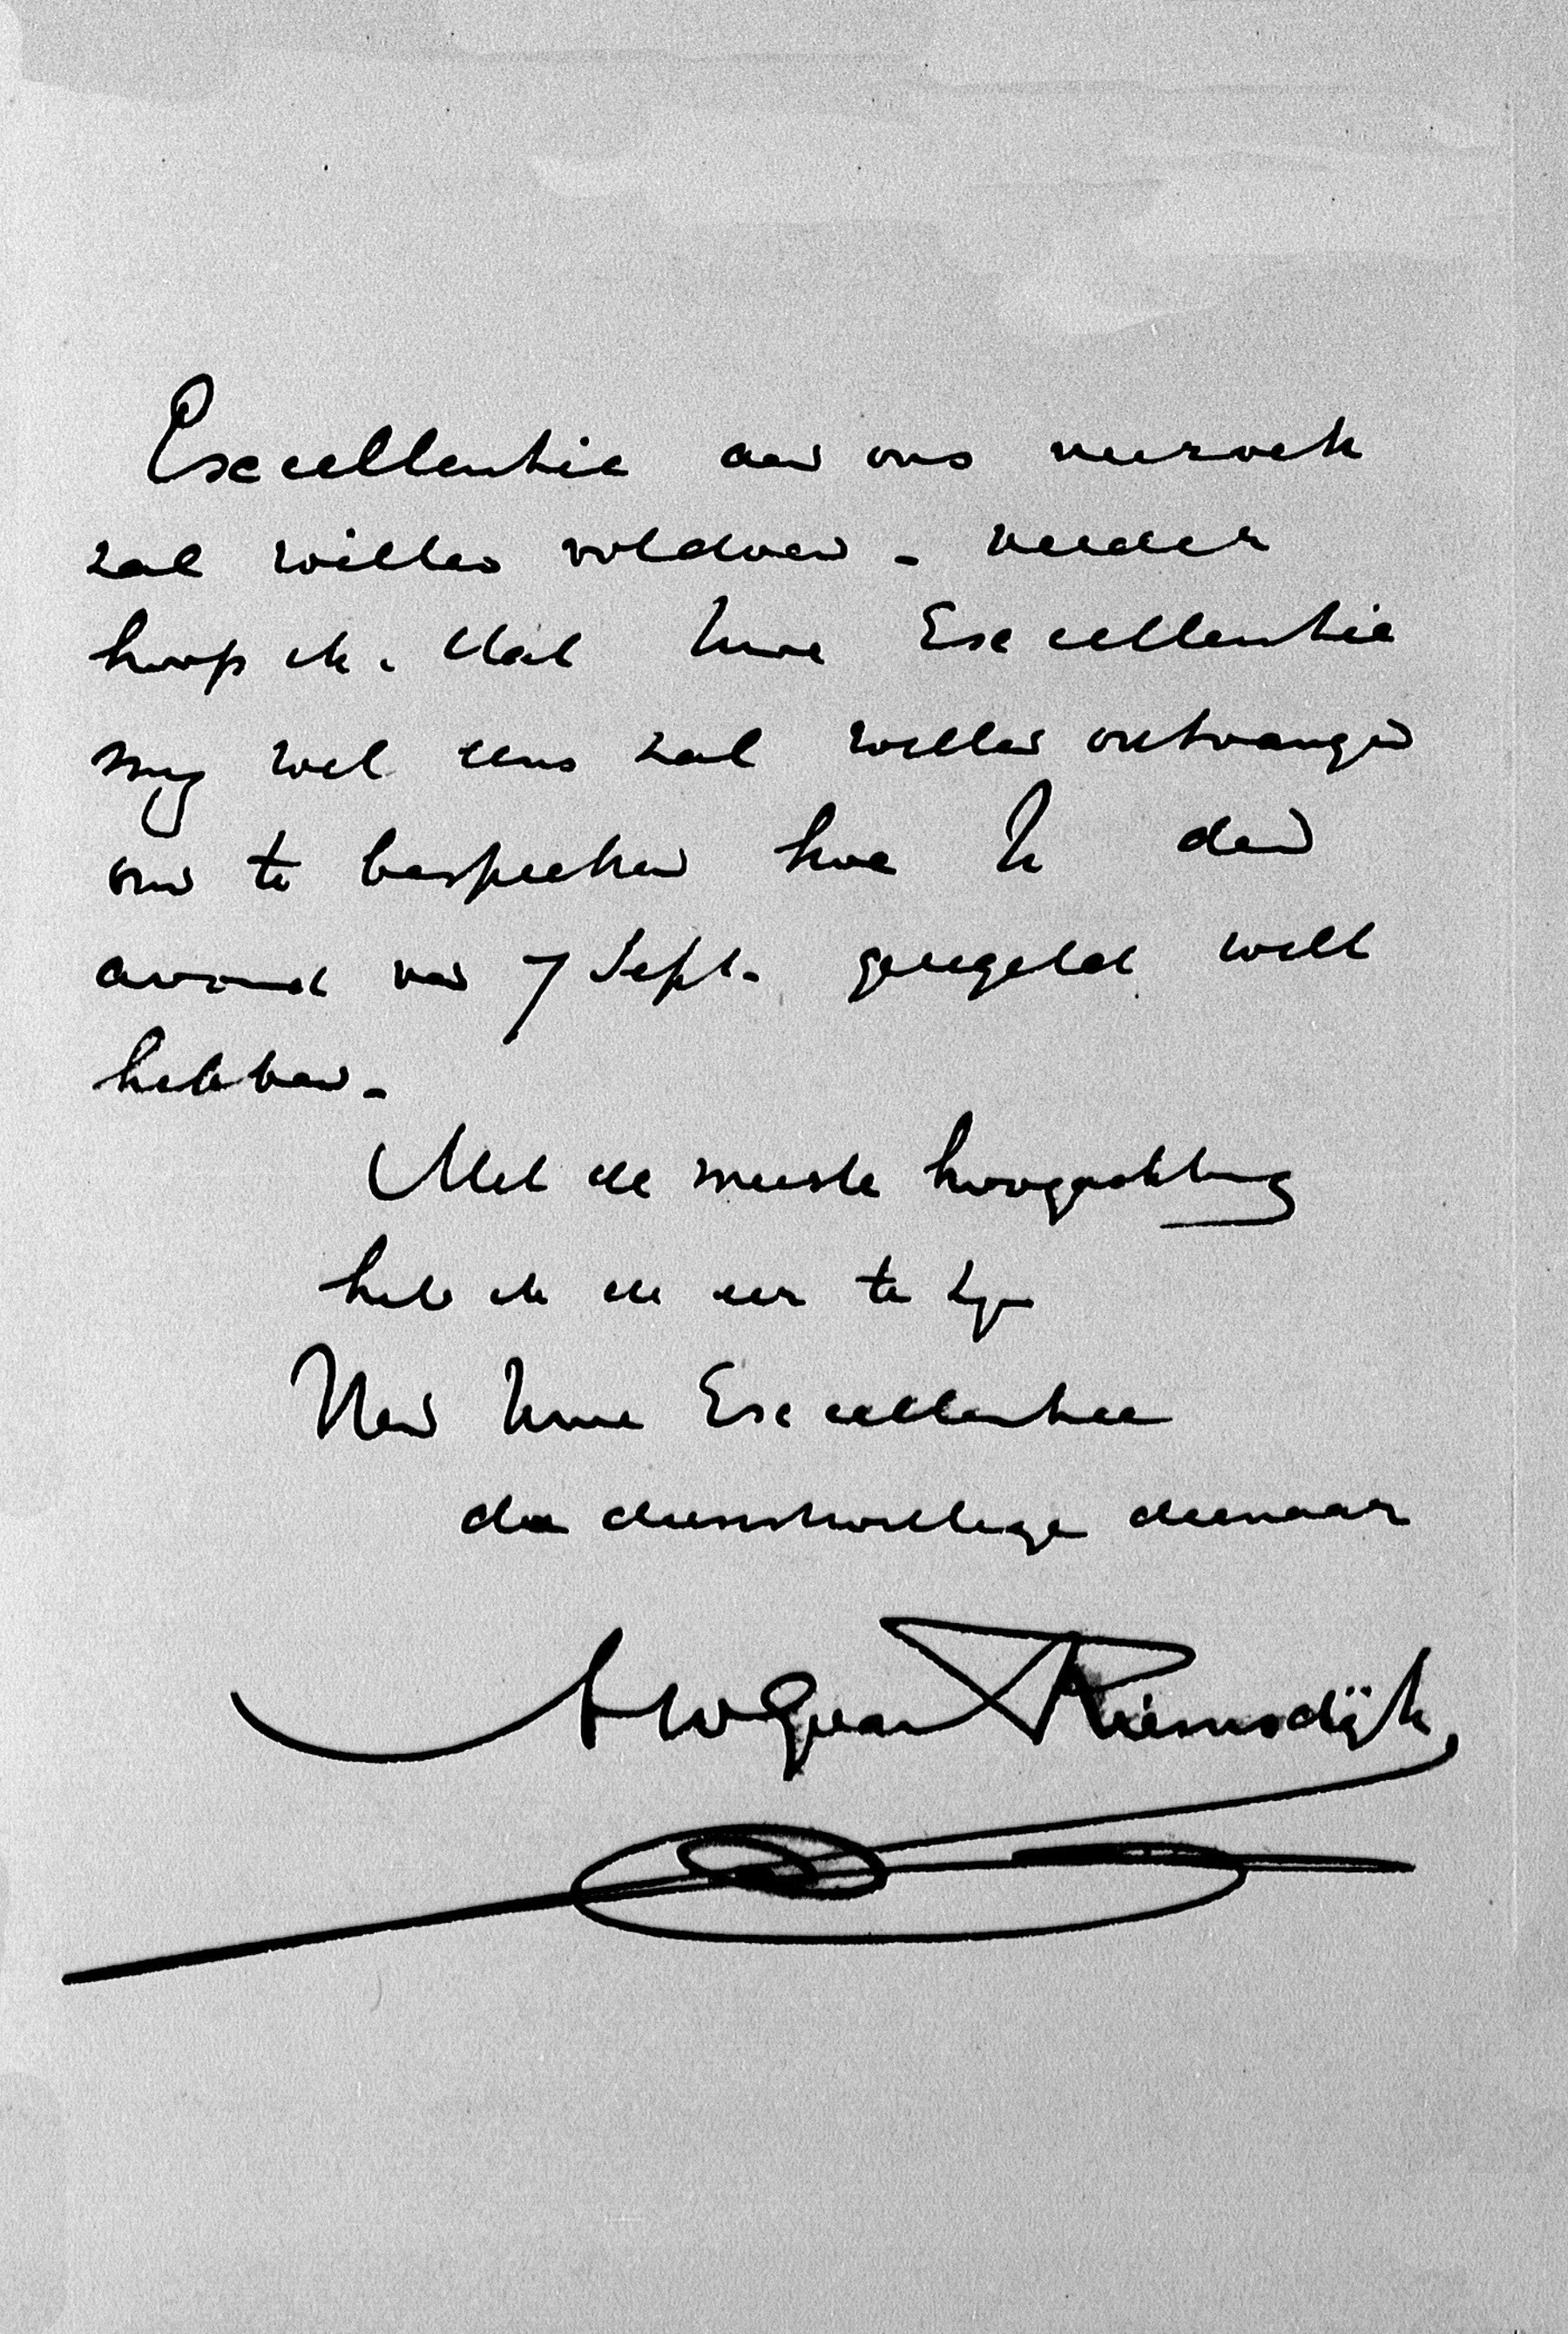 Excellentie aan ons verzoek
zal willen voldoen - verder
hoop ik. dat Uwe Excellentie
mij wel eens zal willen ontvangen
om te bespreken hoe U den
avond van 7 Sept. geregeld wilt
hebben -
Met de meeste hoogachting
heb ik de eer te zijn
Van Uwe Excellentie
de dienstwillige dienaar
van Riemsdijk